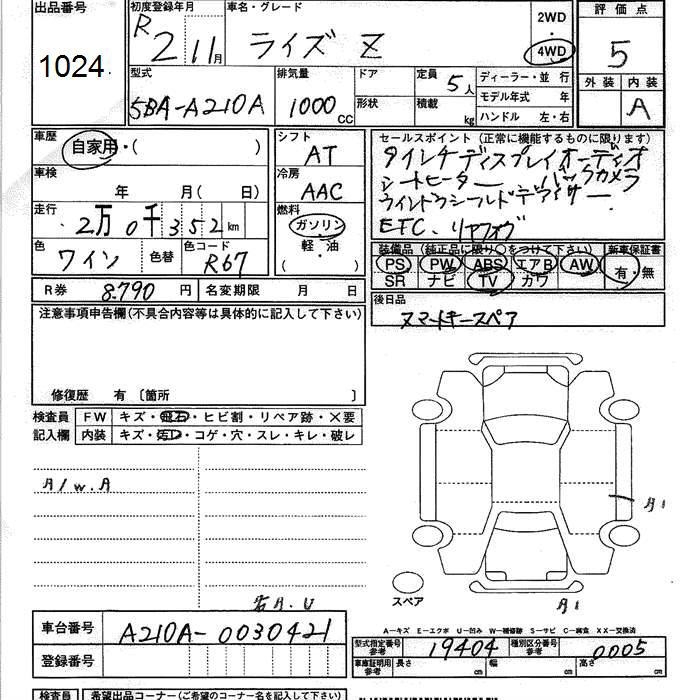 出品番号
1024
初度登録年月
R 2 11月
車名・グレード
ライズ Z
2WD
4WD
評価点
5
外装 内装
A
型式
5BA-A210A
排気量
1000 CC
ドア
形状
定員 5人
積載 kg
ディーラー・並 行
モデル年式 年
ハンドル 左・右
車歴
自家用・( )
車検
年 月( 日)
走行
2万0千352km
色
ワイン
色替
色コード
R67
シフト
AT
冷房
AAC
燃料
ガソリン
軽・油
( )
セールスポイント (正常に機能するものに限ります)
9インチディスプレイオーディオ
シートヒーター バックカメラ
ウインドウシールドデアイサー
ETC、リヤフォグ
装備品 (純正品に限り○をつけて下さい)
PS PW ABS エアB AW
SR ナビ TV カワ
新車保証書
有・無
R券 8.790 円
名変期限 月 日
後日品
スマートキースペア
注意事項申告欄(不具合内容等は具体的に記入して下さい)
修復歴 有 〔箇所 〕
検査員
記入欄
FW キズ・飛石・ヒビ割・リペア跡・×要
内装 キズ・汚レ・コゲ・穴・スレ・キレ・破レ
A/W.A
A1
スペア
A1
A.U
車台番号
A210A-0030421
登録番号
A-キズ E-エクボ U-凹み W-補修跡 S-サビ C-腐食 XX-交換済
型式指定番号
参考
19404
種別区分番号
参考
0005
車庫証明用
参考
長さ cm 幅 cm 高さ cm
検査員
希望出品コーナー(ご希望のコーナー名を記入して下さい)